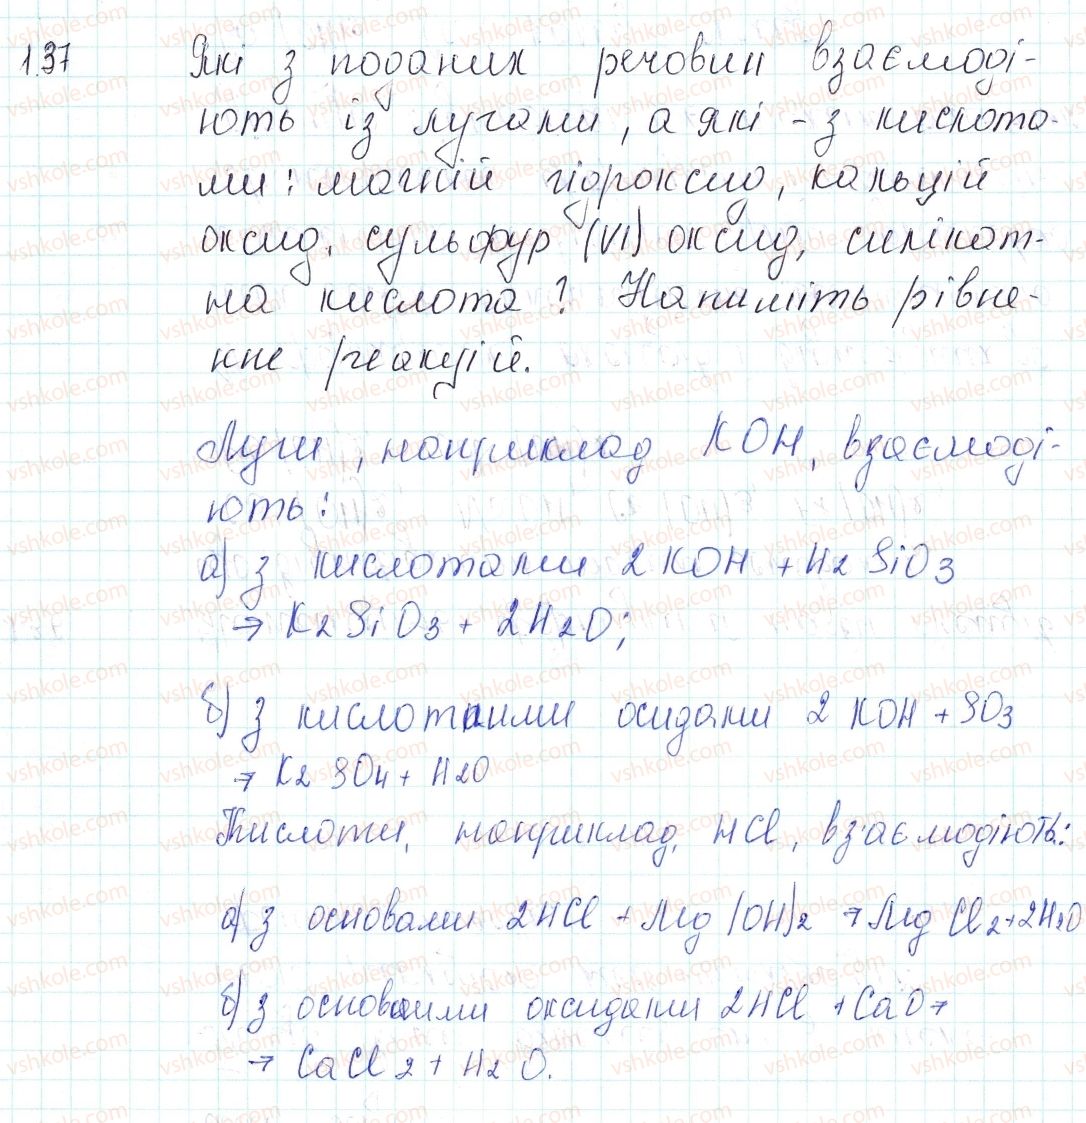 1.37 Які з поданих речовин взаємоді-
ють із лугами, а які - з кислота-
ми: магній гідроксид, кальцій
оксид, сульфур (VI) оксид, силікат-
на кислота? Напишіть рівня-
ння реакцій.
Луги, наприклад KOH, взаємоді-
ють:
а) з кислотами 2KOH + H2SiO3
→ K2SiO3 + 2H2O;
б) з кислотними осидами 2KOH + SO3
→ K2SO4 + H2O
Кислоти, наприклад, HCl, взаємодіють:
а) з основами 2HCl + Mg(OH)2 → MgCl2+2H2O
б) з основними оксидами 2HCl + CaO →
→ CaCl2 + H2O.